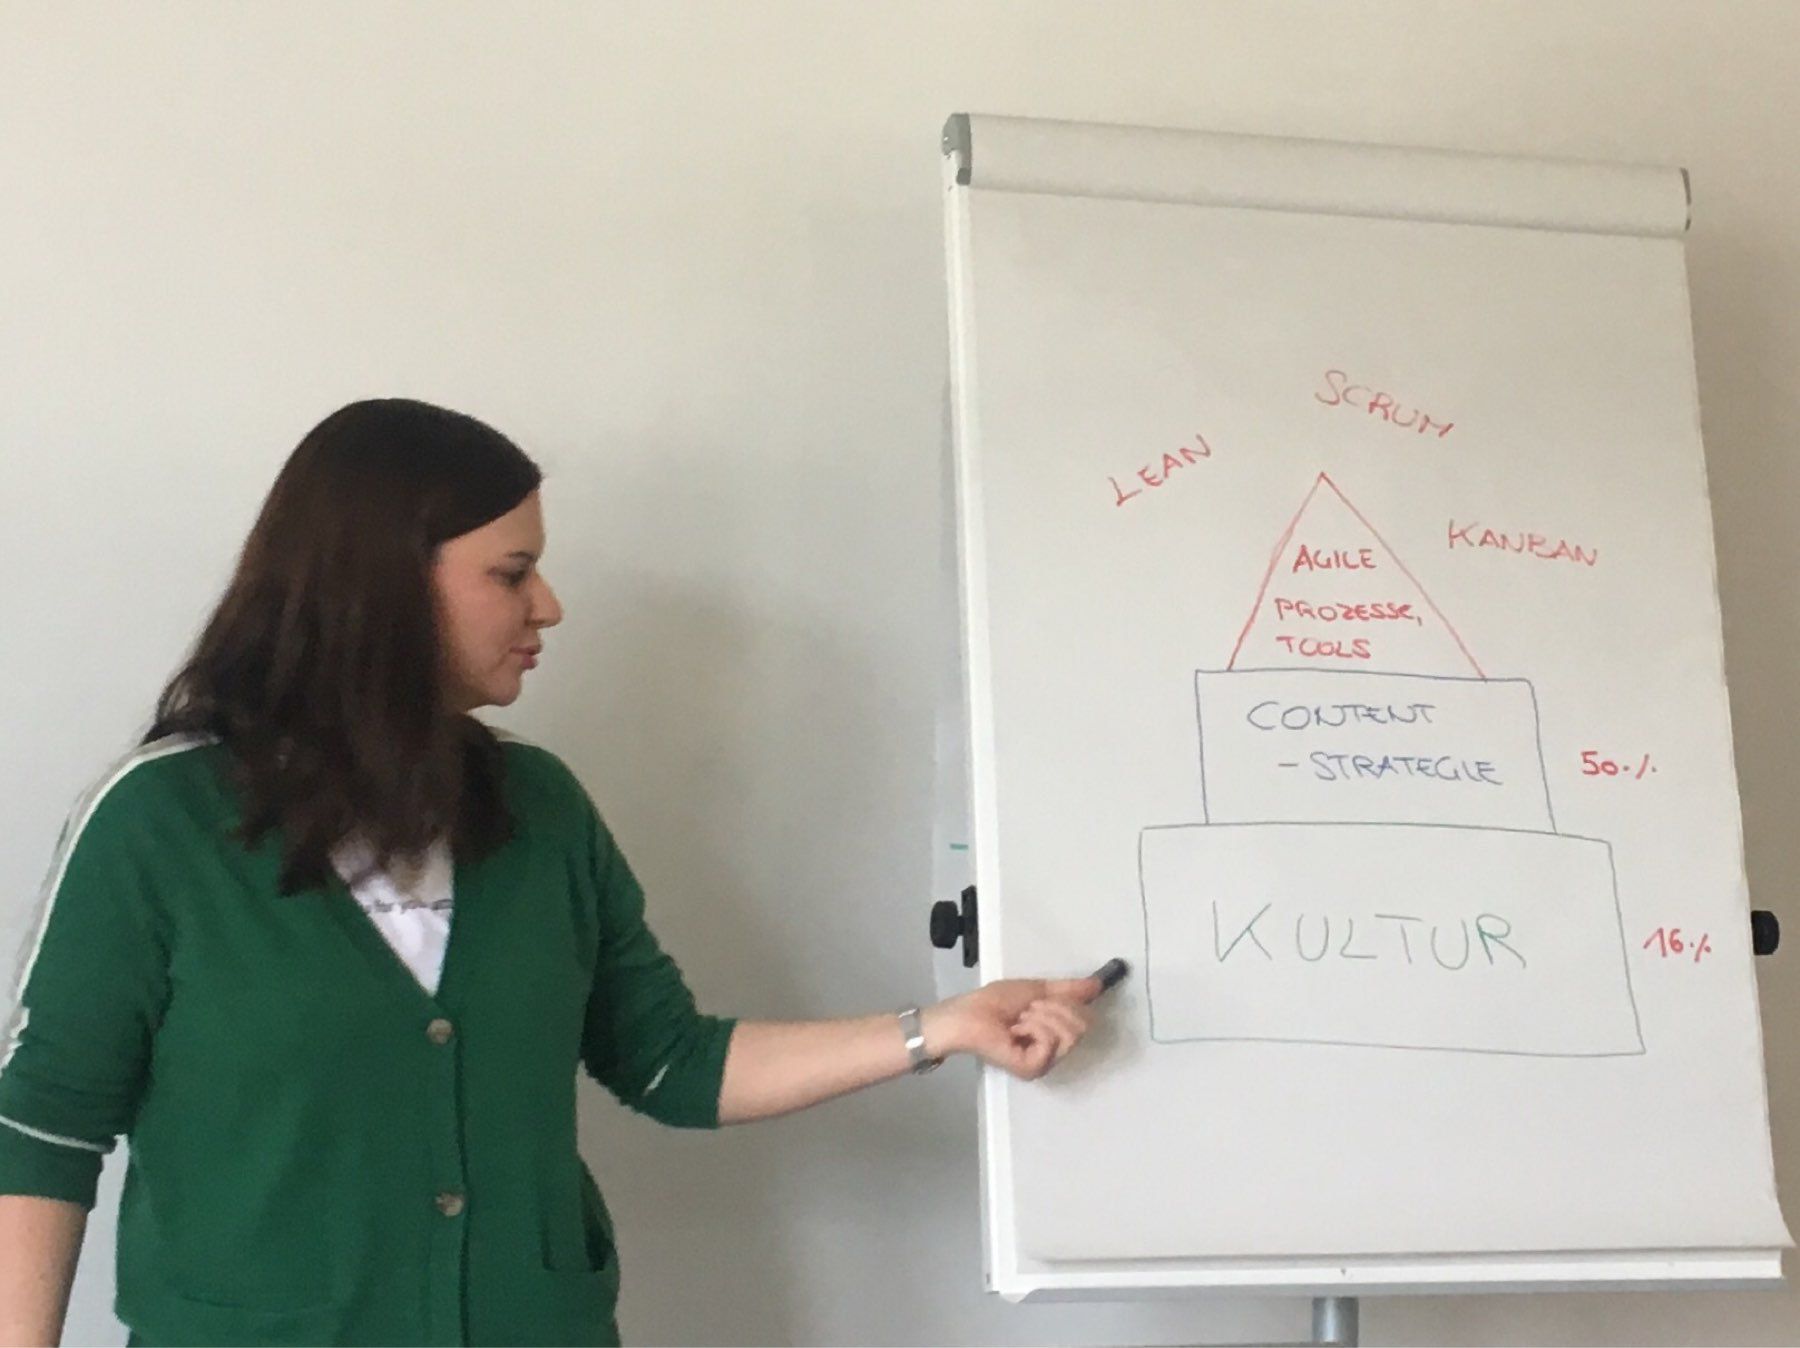 SCRUM
LEAN
KANBAN
AGILE
PROZESSE,
TOOLS
CONTENT
- STRATEGIE
50%
KULTUR
16%